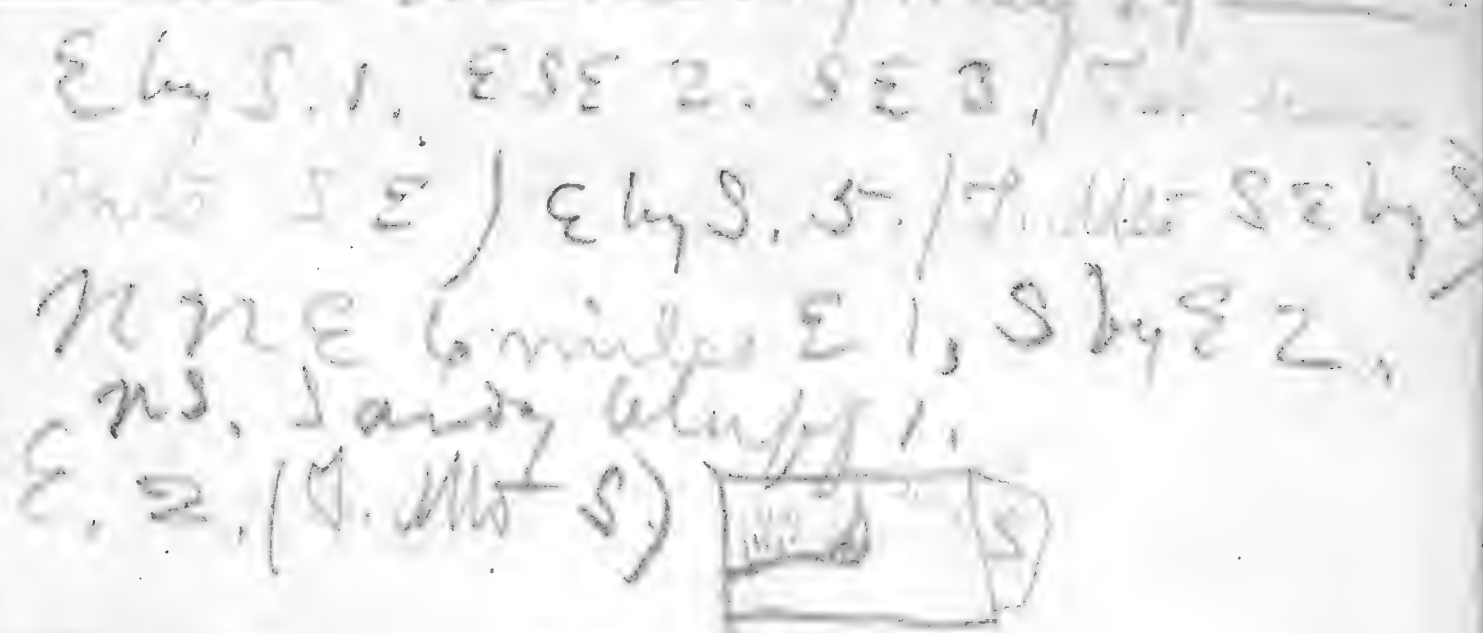 E by S. 1. ESE 2. SE 3, (
SE) E by S. 5. (T. Mt SE by S)
NNE 6 miles E 1, S by E 2,
ns. Sandy bluff 1.
E. 2. (T. Mt S)
S